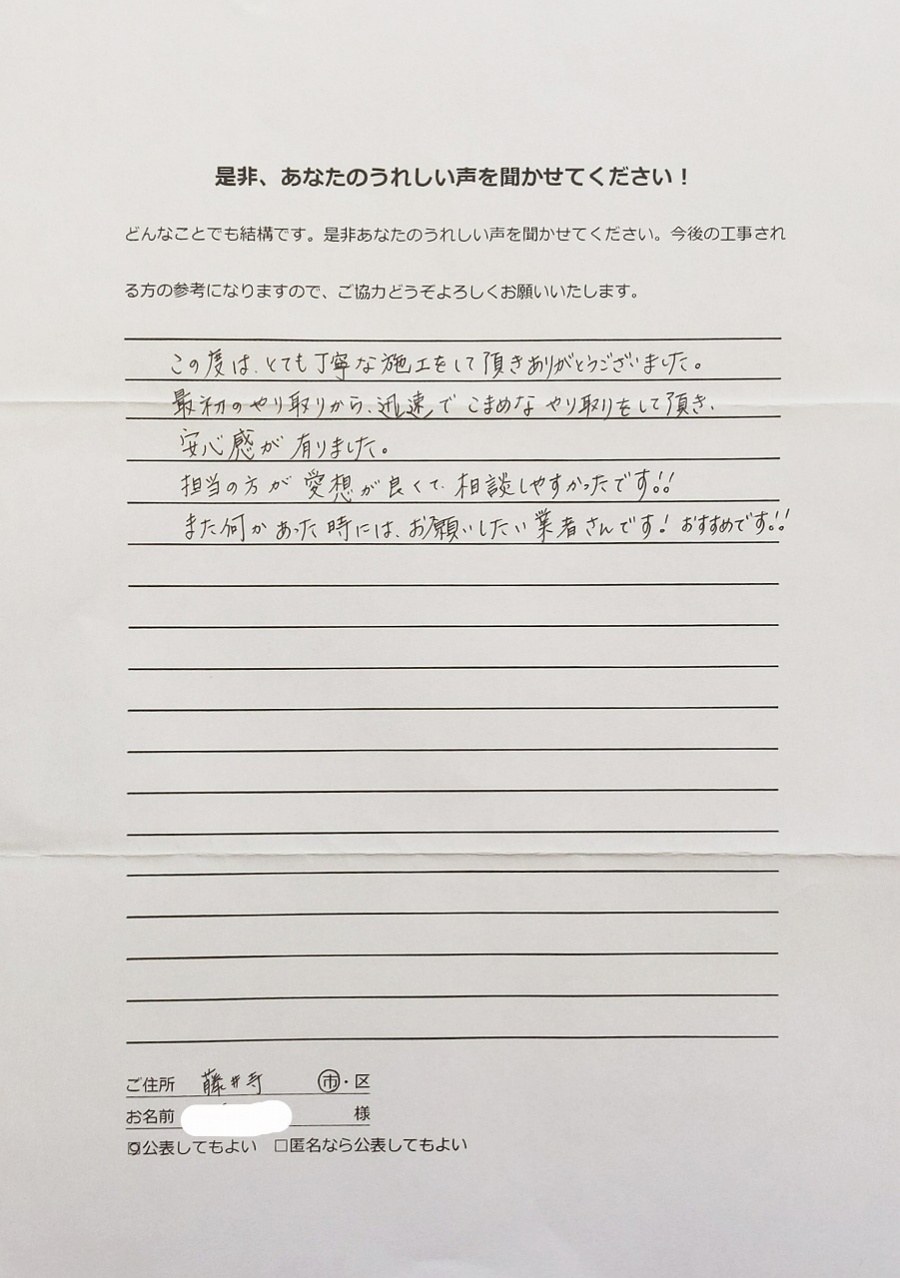 是非、あなたのうれしい声を聞かせてください！
どんなことでも結構です。是非あなたのうれしい声を聞かせてください。今後の工事され
る方の参考になりますので、ご協力どうぞよろしくお願いいたします。
この度は、とても丁寧な施工をして頂きありがとうございました。
最初のやり取りから、迅速でこまめなやり取りをして頂き、
安心感が有りました。
担当の方が愛想が良くて、相談しやすかったです!!
また何かあった時には、お願いしたい業者さんです! おすすめです!!
ご住所 藤井寺 市・区
お名前 様
☑公表してもよい □匿名なら公表してもよい